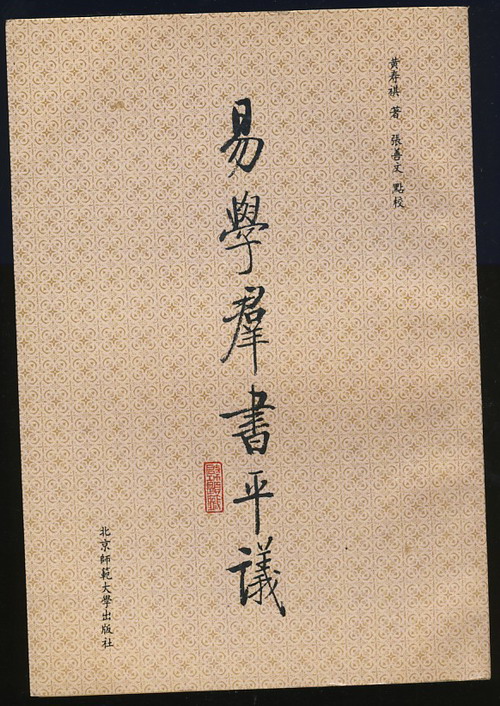 黃壽祺 著 張善文 點校
易學羣書平議
北京師範大學出版社